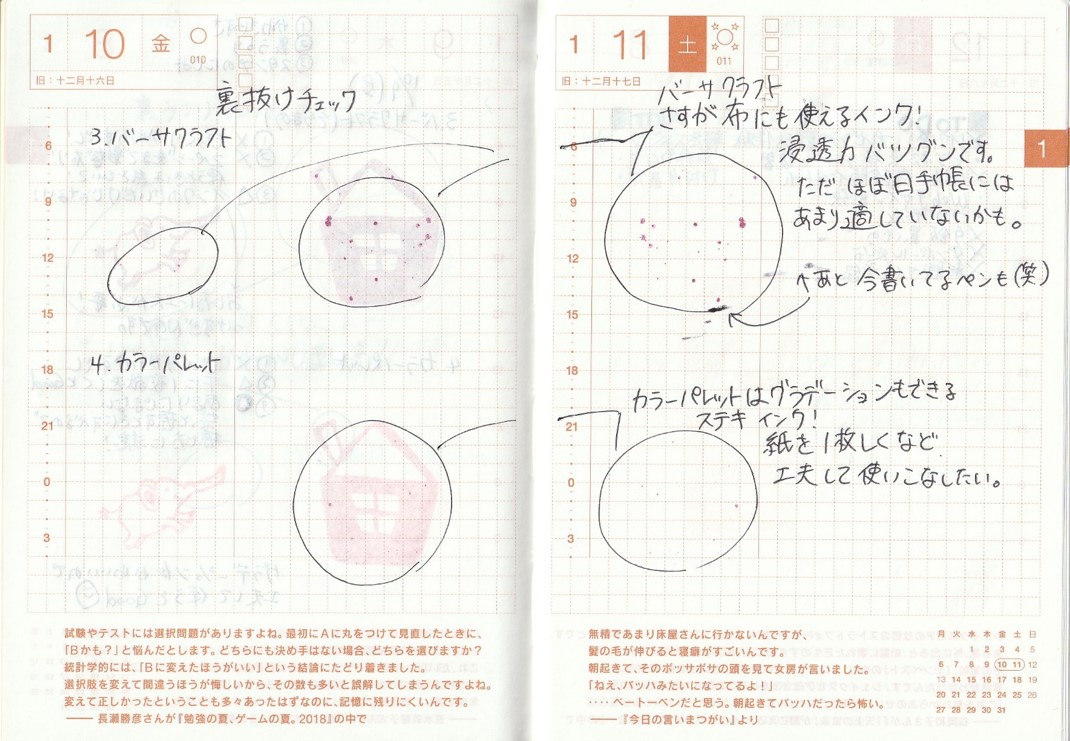 1 10 金
010
旧：十二月十六日
裏抜けチェック
3.バーサクラフト
6
9
12
15
4.カラーパレット
18
21
0
3
試験やテストには選択問題がありますよね。最初にAに丸をつけて見直したときに、
「Bかも？」と悩んだとします。どちらにも決め手はない場合、どちらを選びますか？
統計学的には、「Bに変えたほうがいい」という結論にたどり着きました。
選択肢を変えて間違うほうが悔しいから、その数も多いと誤解してしまうんですよね。
変えて正しかったということも多々あったはずなのに、記憶に残りにくいんです。
── 長瀬勝彦さんが『勉強の夏、ゲームの夏。2018』の中で
1 11 土
011
旧：十二月十七日
1
バーサクラフト
さすが布にも使えるインク！
浸透力バツグンです。
ただ ほぼ日手帳には
あまり適していないかも。
↑あと 今書いてるペンも(笑)
6
9
12
15
18
21
0
3
カラーパレットはグラデーションもできる
ステキインク！
紙を1枚しくなど
工夫して使いこなしたい。
無精であまり床屋さんに行かないんですが、
髪の毛が伸びると寝癖がすごいんです。
朝起きて、そのボッサボサの頭を見て女房が言いました。
「ねえ、バッハみたいになってるよ！」
‥‥ベートーベンだと思う。朝起きてバッハだったら怖い。
──『今日の言いまつがい』より
月 火 水 木 金 土 日
1 2 3 4 5
6 7 8 9 10 11 12
13 14 15 16 17 18 19
20 21 22 23 24 25 26
27 28 29 30 31